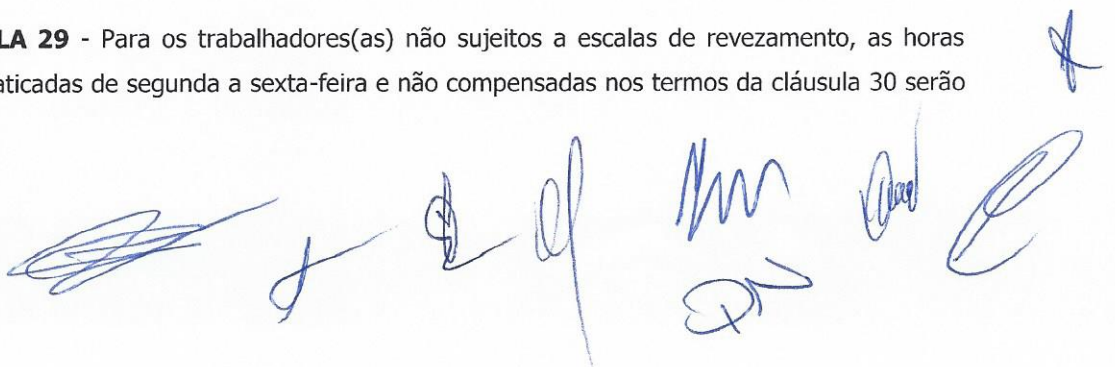 LA 29 - Para os trabalhadores(as) não sujeitos a escalas de revezamento, as horas
aticadas de segunda a sexta-feira e não compensadas nos termos da cláusula 30 serão